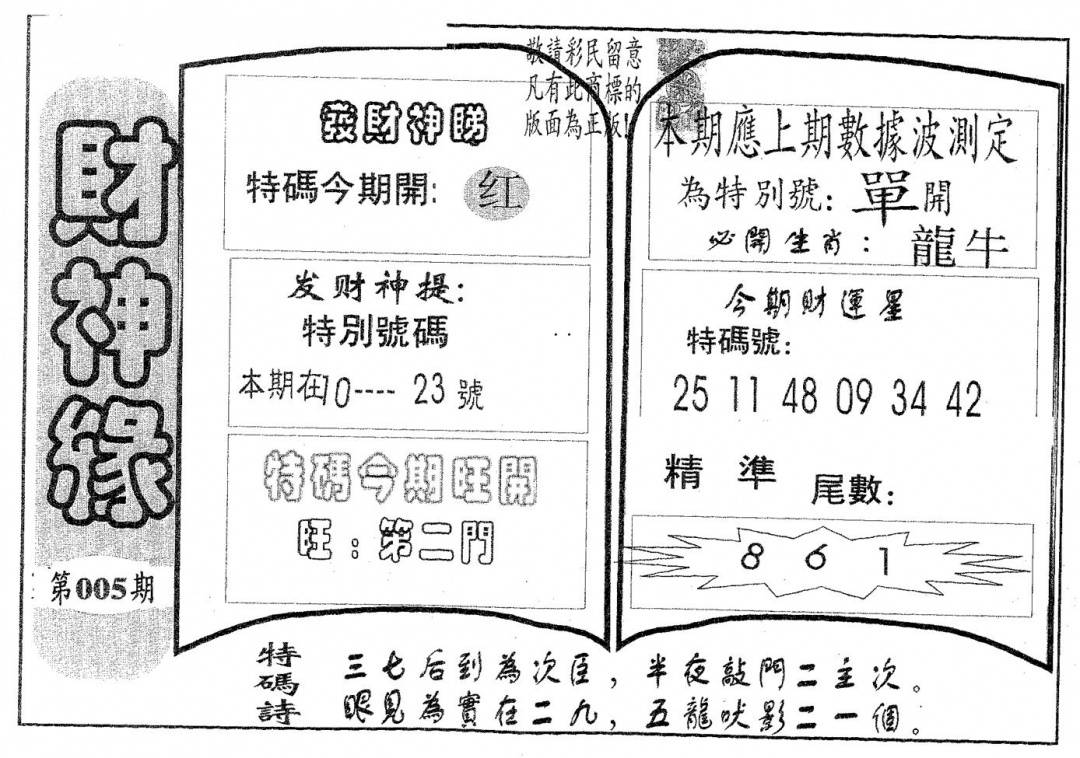 財神緣
第005期
敬請彩民留意
凡有此商標的
版面為正版!
發財神睇
特碼今期開: 红
发财神提:
特別號碼
本期在10---- 23號
特碼今期旺開
旺:第二門
本期應上期數據波測定
為特別號: 單開
必開生肖: 龍牛
今期財運星
特碼號:
25 11 48 09 34 42
精準 尾數:
8 6 1
特碼詩
三七后到為次臣,半夜敲門二主次。
眼見為實在二九,五龍吠影二一個。